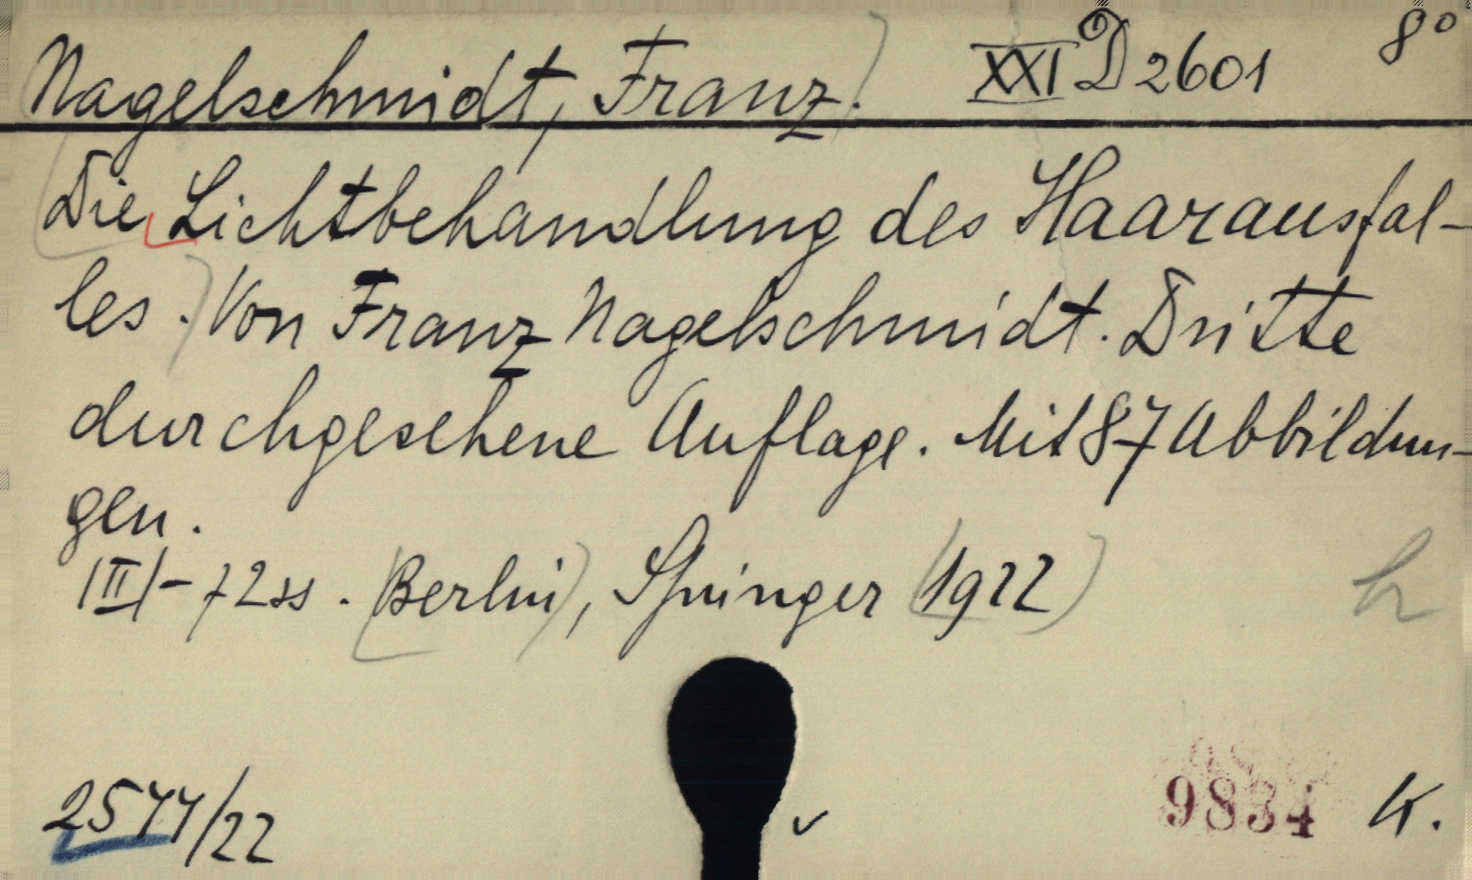 Nagelschmidt, Franz. XXI D 2601 8°
Die Lichtbehandlung des Haarausfal-
les. Von Franz Nagelschmidt. Dritte
durchgesehene Auflage. Mit 87 Abbildun-
gen.
|III| - 72 ss. (Berlin), Springer (1922)
h
2577/22
9834 K.